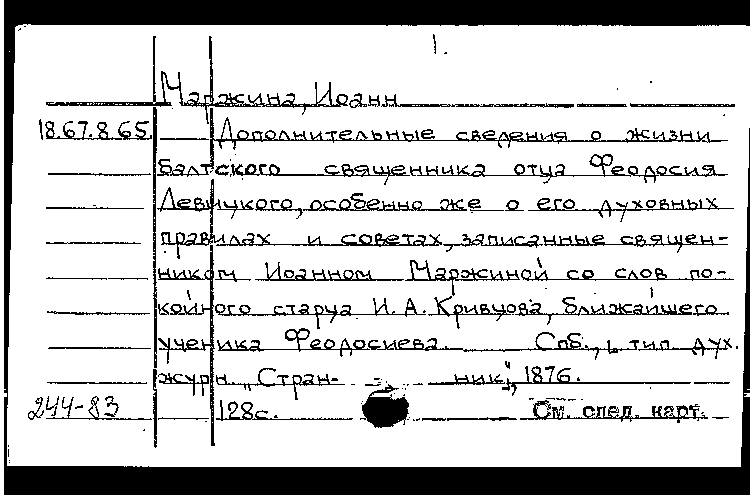 1.
Маржина, Иоанн
18.67.8.65. Дополнительные сведения о жизни
балтского священника отца Феодосия
Левицкого, особенно же о его духовных
правилах и советах, записанные священ-
ником Иоанном Маржиной со слов по-
койного старца И. А. Кривцова, ближайшего
ученика Феодосиева. Спб., тип. дух.
журн. „Стран- ник“, 1876.
244-83 128с. См. след. карт.